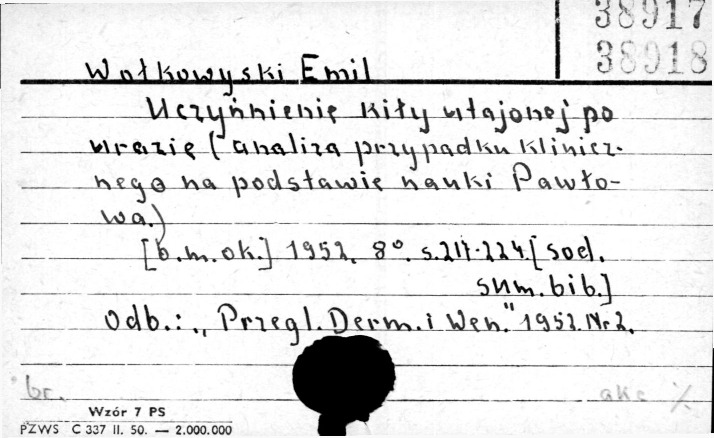 38917
38918
Wołkowyski Emil
Uczyńnienie kiły utajonej po
urazie (analiza przypadku klinicz-
nego na podstawie nauki Pawło-
wa.)
[b.m.ok.] 1952. 8°. s.217-224.[soel.
sum.bib.]
Odb.: „Przegl.Derm.i Wen." 1952.Nr 2.
br.
akc
Wzór 7 PS
PZWS C 337 II. 50. — 2.000.000